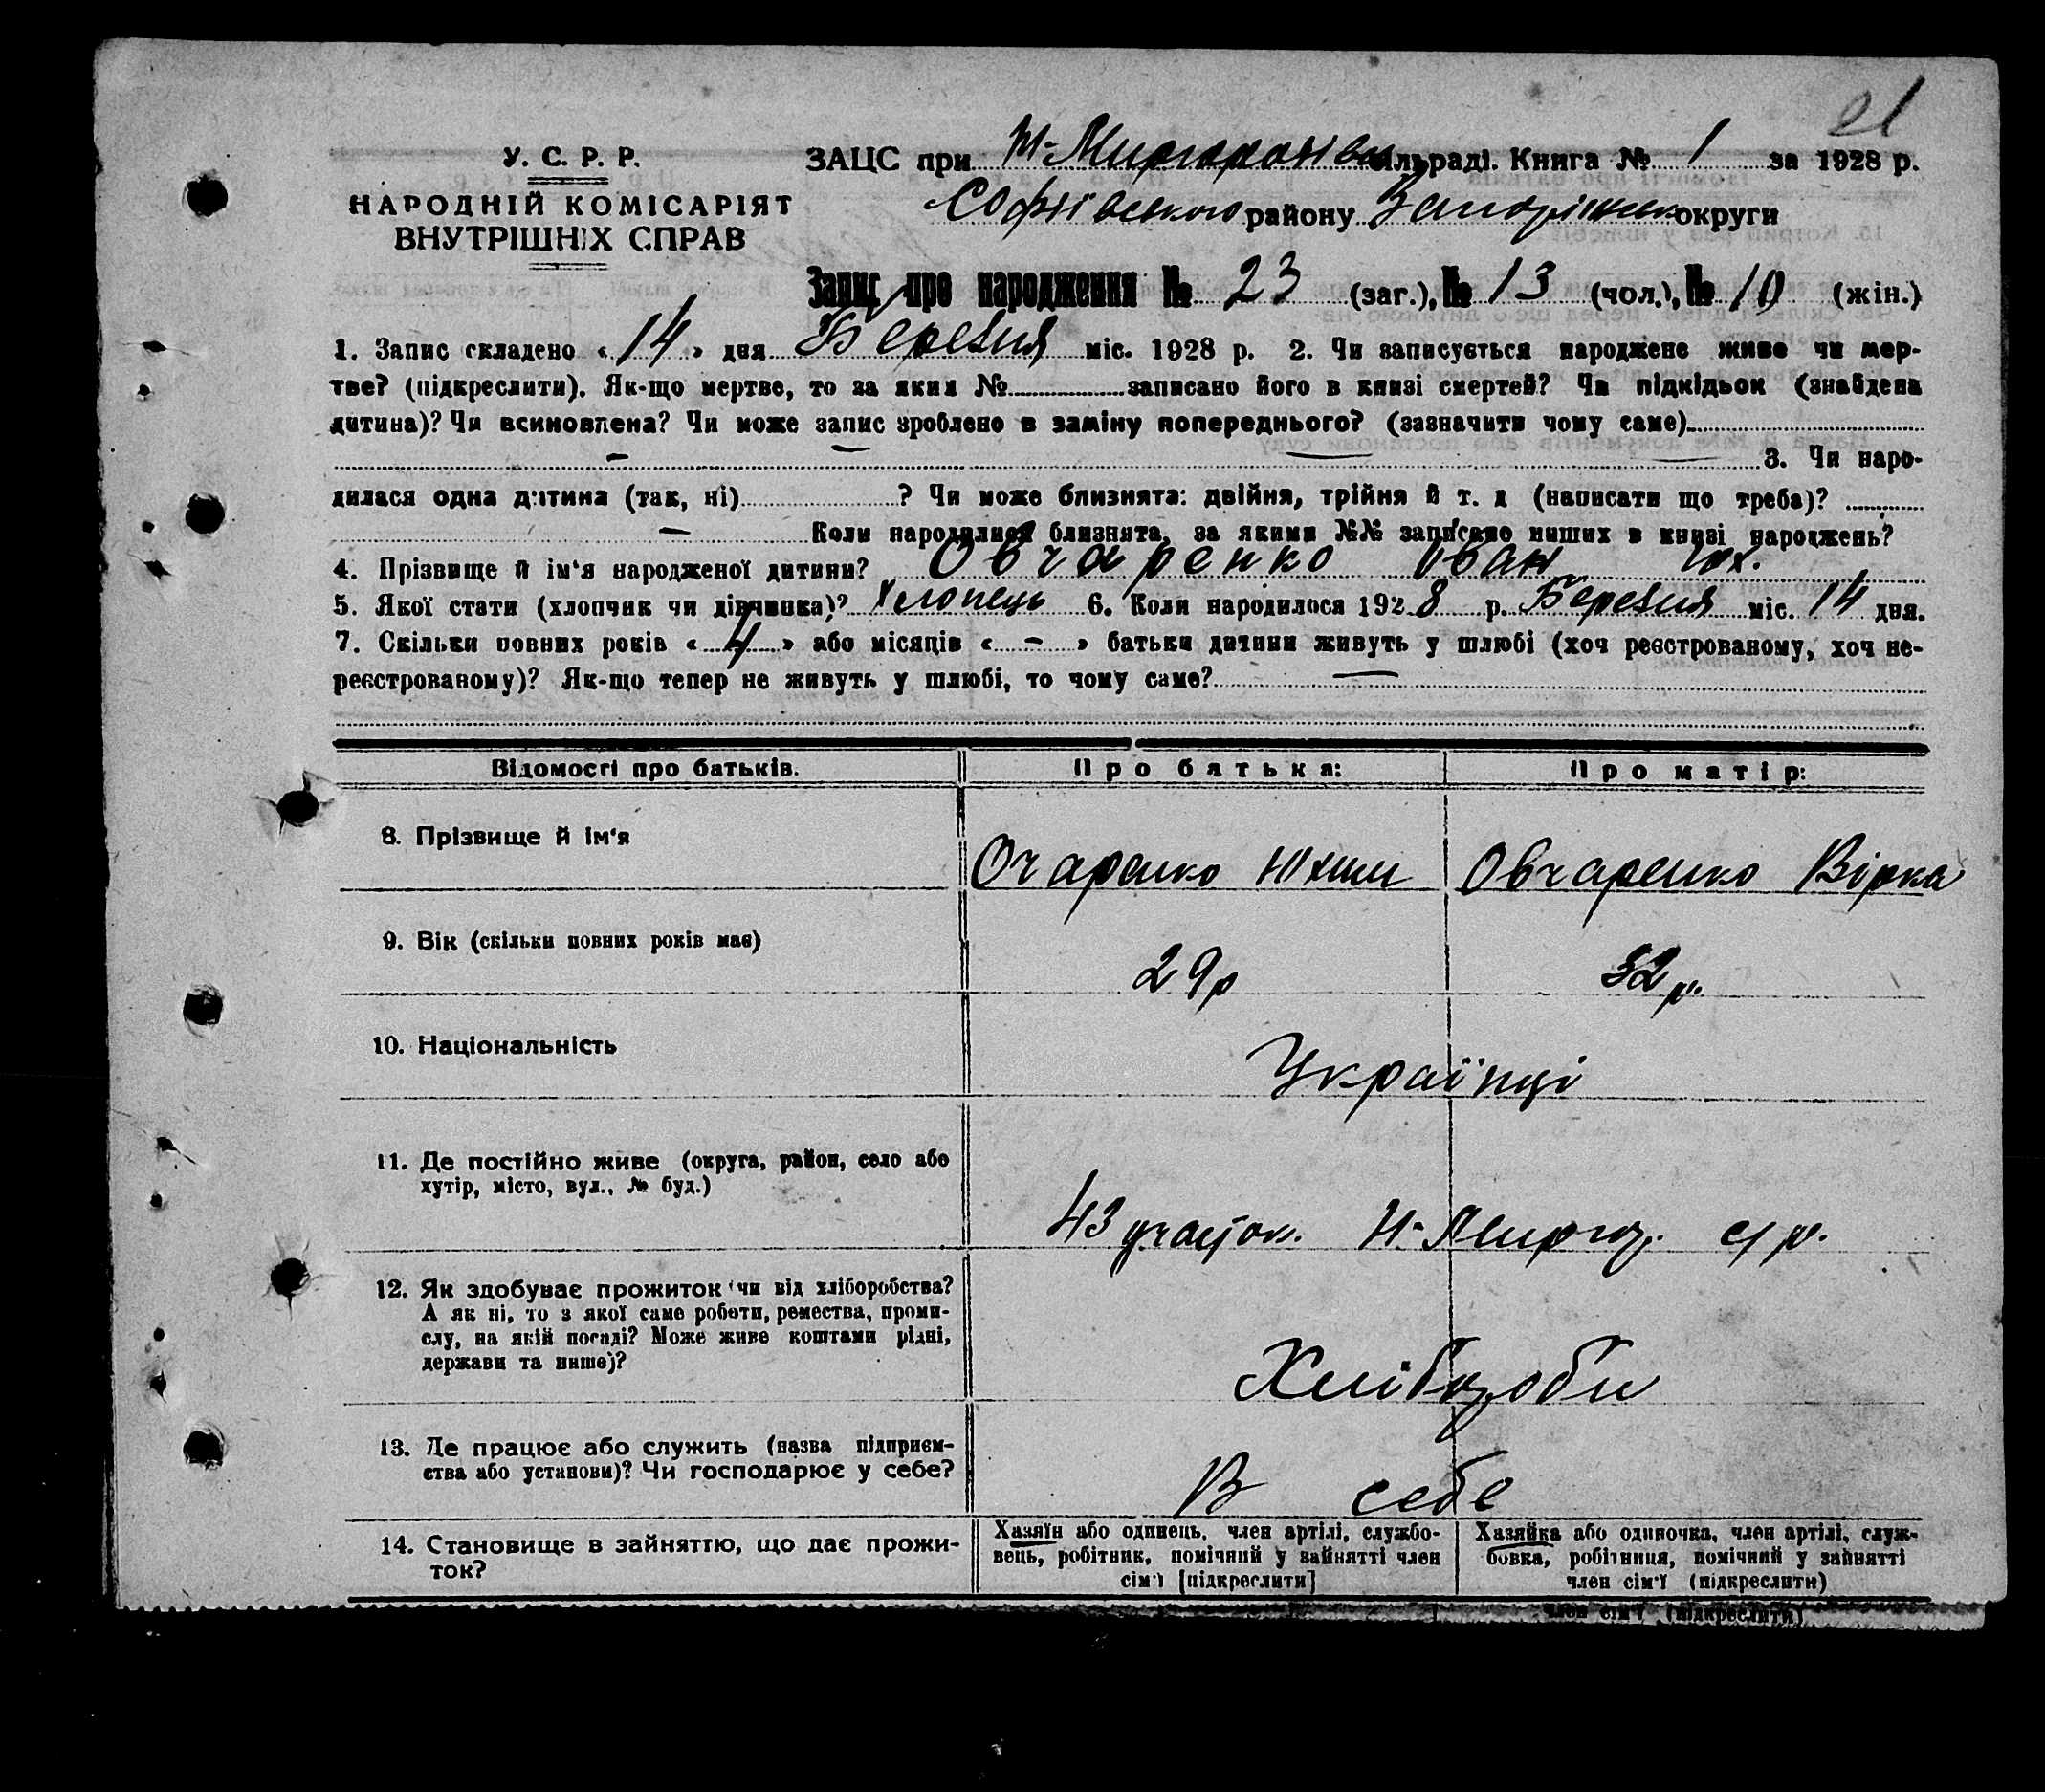 21
У. С. Р. Р.
НАРОДНІЙ КОМІСАРІЯТ
ВНУТРІШНІХ СПРАВ
ЗАЦС при сільраді. Книга № 1 за 1928 р.
Софіївського району Запоріжськ округи
Запис про народження № 23 (заг.), № 13 (чол.), № 10 (жін.)
1. Запис складено « 14 » дня Березня міс. 1928 р. 2. Чи записується народжене живе чи мер-
тве? (підкреслити). Як-що мертве, то за яким № записано його в книзі смертей? Чи підкідьок (знайдена
дитина)? Чи всиновлена? Чи може запис зроблено в заміну попереднього? (зазначити чому саме)
— — — — 3. Чи наро-
дилася одна дитина (так, ні) ? Чи може близнята: двійня, трійня й т. д (написати що треба)?
— Коли народилися близнята, за якими №№ записано инших в книзі народжень?
4. Прізвище й ім‘я народженої дитини? Овчаренко Іван Юх.
5. Якої стати (хлопчик чи дівчинка)? Хлопець 6. Коли народилося 1928 р. Березня міс. 14 дня.
7. Скільки повних років « 4 » або місяців « - » батьки дитини живуть у шлюбі (хоч реєстрованому, хоч не-
реєстрованому)? Як-що тепер не живуть у шлюбі, то чому саме? —
Відомості про батьків. Про батька: Про матір:
8. Прізвище й ім‘я Очаренко Юхим Овчаренко Вірка
9. Вік (скільки повних років має) 29р 32р.
10. Національність Українці
11. Де постійно живе (округа, район, село або
хутір, місто, вул., № буд.)
43 участок. Н-Миргор. с/р.
12. Як здобуває прожиток (чи від хліборобства?
А як ні, то з якої саме роботи, ремества, проми-
слу, на якій посаді? Може живе коштами рідні,
держави та инше)?
Хлібороби
13. Де працює або служить (назва підприєм-
ства або установи)? Чи господарює у себе?
В себе
14. Становище в зайняттю, що дає прожи-
ток?
Хазяїн або одинець, член артілі, службо-
вець, робітник, помічний у зайнятті член
сім‘ї [підкреслити]
Хазяйка або одиночка, член артілі, служ-
бовка, робітниця, помічний у зайнятті
член сім‘ї (підкреслити)
член сім‘ї (підкреслити)